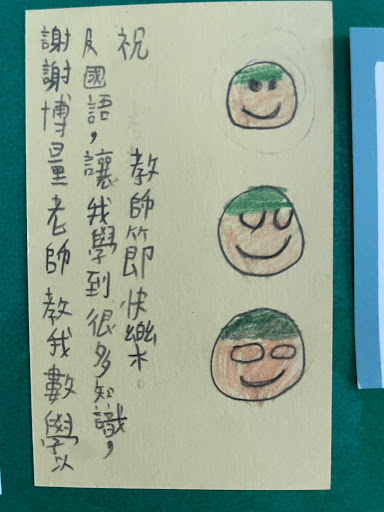 謝謝博量老師教我數學以
及國語，讓我學到很多知識，
祝　教師節快樂。